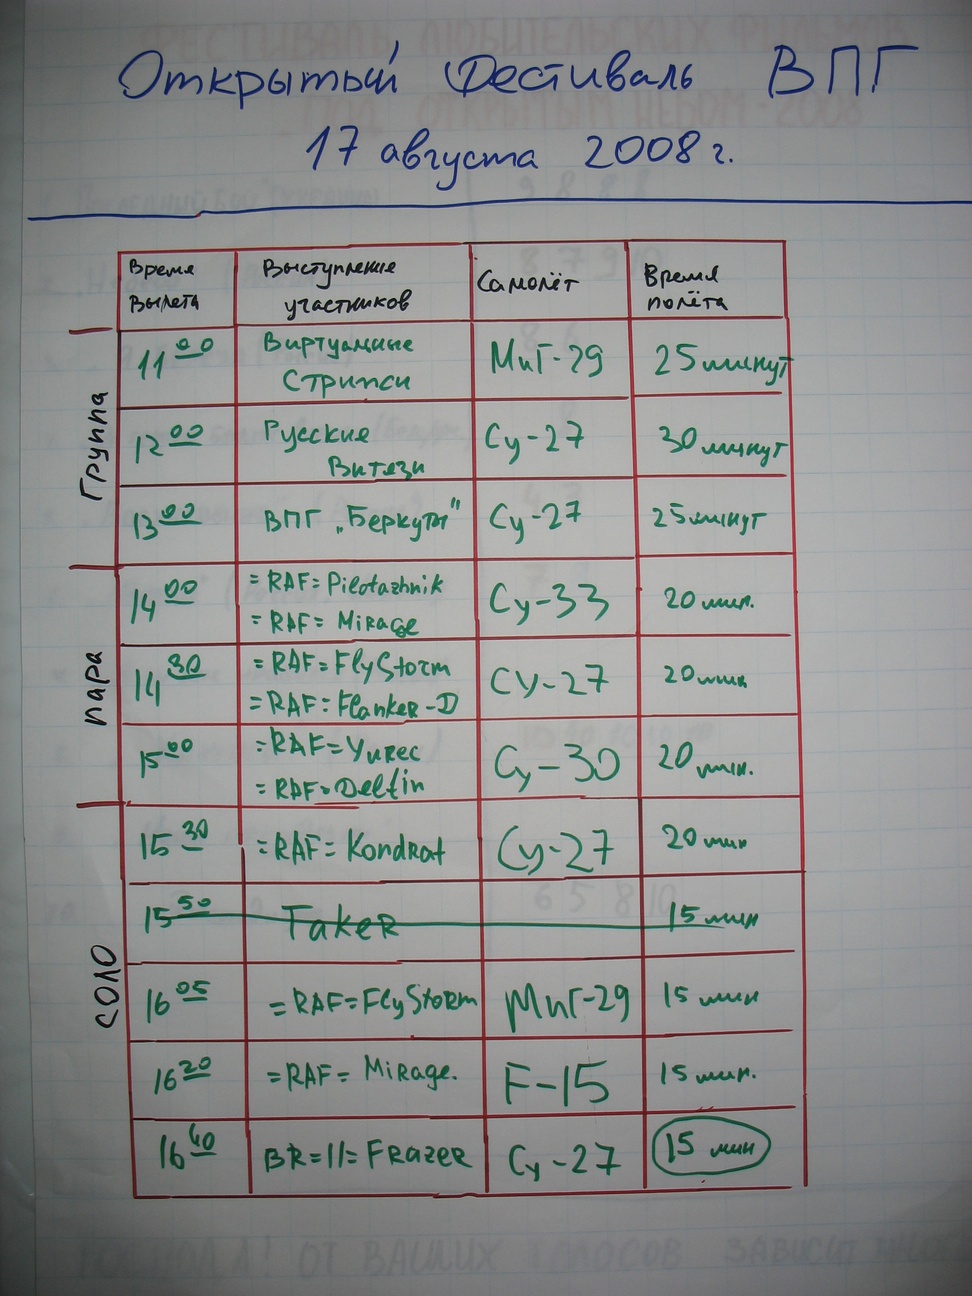 Открытый Фестиваль ВПГ
17 августа 2008 г.
Время вылета Выступление участников Самолёт Время полёта
Группа
11 00 Виртуальные Стрижи МиГ-29 25 минут
12 00 Русские Витязи Су-27 30 минут
13 00 ВПГ „Беркуты" Су-27 25 минут
пара
14 00 =RAF=Pilotazhnik =RAF=Mirage Су-33 20 мин.
14 30 =RAF=FlyStorm =RAF=Flanker-D Су-27 20 мин
15 00 =RAF=Yurec =RAF=Delfin Су-30 20 мин.
СОЛО
15 30 =RAF=Kondrat Су-27 20 мин
15 50 Taker 15 мин
16 05 =RAF=FlyStorm МиГ-29 15 мин
16 20 =RAF=Mirage. F-15 15 мин.
16 40 BR=11=Frazer Су-27 15 мин